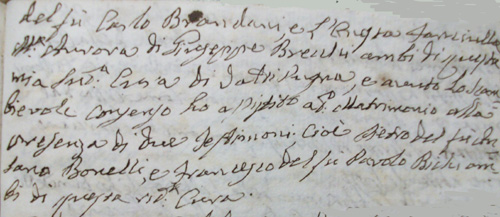 del fu Carlo Brandani, e l'Onesta Fanciulla
M.ª Aurora di Giuseppe Brecsi ambi di questa
mia Sud.ª Cura di, e avuto lo scam
bievole consenso ho assistito a d.º Matrimonio alla
presenza di due Testimoni cioè Pietro del fu
Bonelli, e Francesco del fu Paolo Bichi am
bi di questa sud.ª Cura.